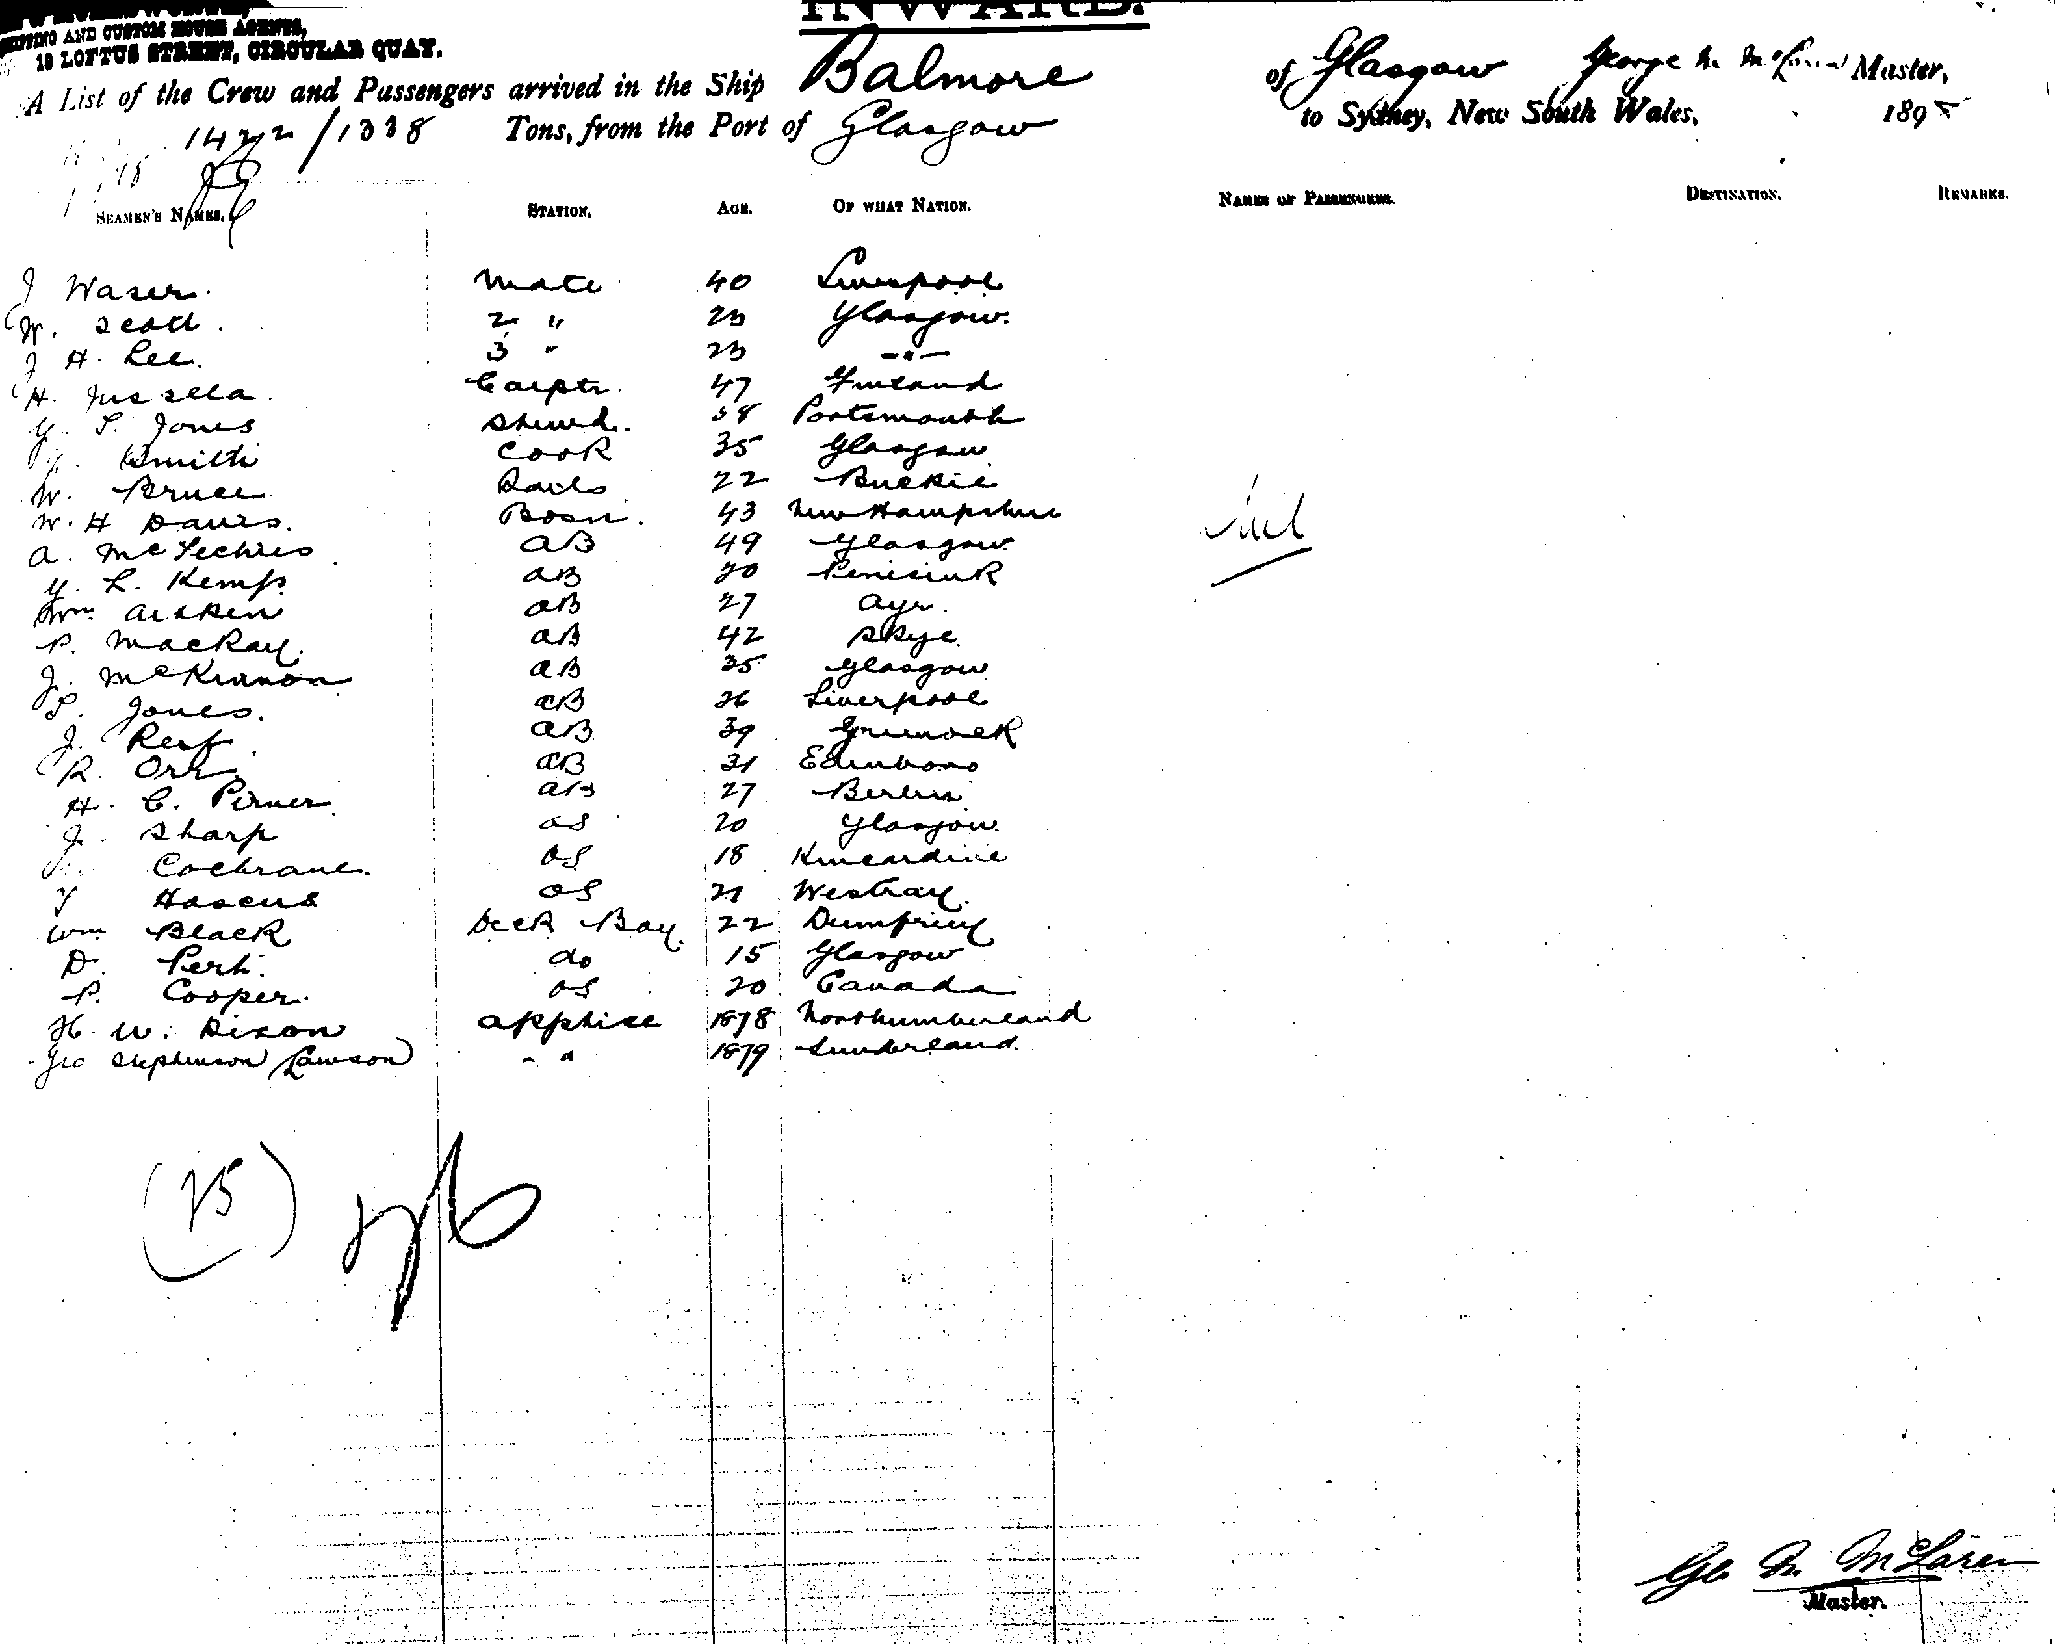 INWARD.
SHIPPING AND CUSTOM HOUSE AGENTS,
19 LOFTUS STREET, CIRCULAR QUAY.
A List of the Crew and Passengers arrived in the Ship Balmore of Glasgow George M. McLaren Master,
1422/1338 Tons, from the Port of Glasgow to Sydney, New South Wales, 189
SEAMEN'S NAMES. STATION. AGE. OF WHAT NATION. NAMES OF PASSENGERS. DESTINATION. REMARKS.
J Waser. Mate 40 Liverpool
W. Scott. 2 " 23 Glasgow.
J H. Lee. 3 " 23 -"-
H. Jussella. Carptr. 47 Finland
G. T. Jones Stewd. 38 Portsmouth
Smith Cook 35 Glasgow
W. Bruce Sails 22 Buckie
W. H Davis. Bosn. 43 New Hampshire
nil
A. McTechies AB 49 Glasgow
G. L. Kemp. AB 20
Wm. Aitken AB 27 Ayr.
P. MacKay. AB 42 Skye.
J. McKinnon AB 35 Glasgow
T. Jones. AB 26 Liverpool
J. Reef. AB 39 Greenock
R. Orr AB 31 Edinboro
H. C. Pirner. AB 27 Berlin
J. Sharp OS 20 Glasgow
Cochrane. OS 18 Kincardine
T OS 21 Westray.
Wm Black Deck Boy. 22 Dumfries
D. Pert. do 15 Glasgow
P. Cooper. OS 20 Canada
H. W. Dixon Apptice 1878 Northumberland
Geo Stephenson Lawson " " 1879 Sunderland.
(25)
Geo M. McLaren
Master.